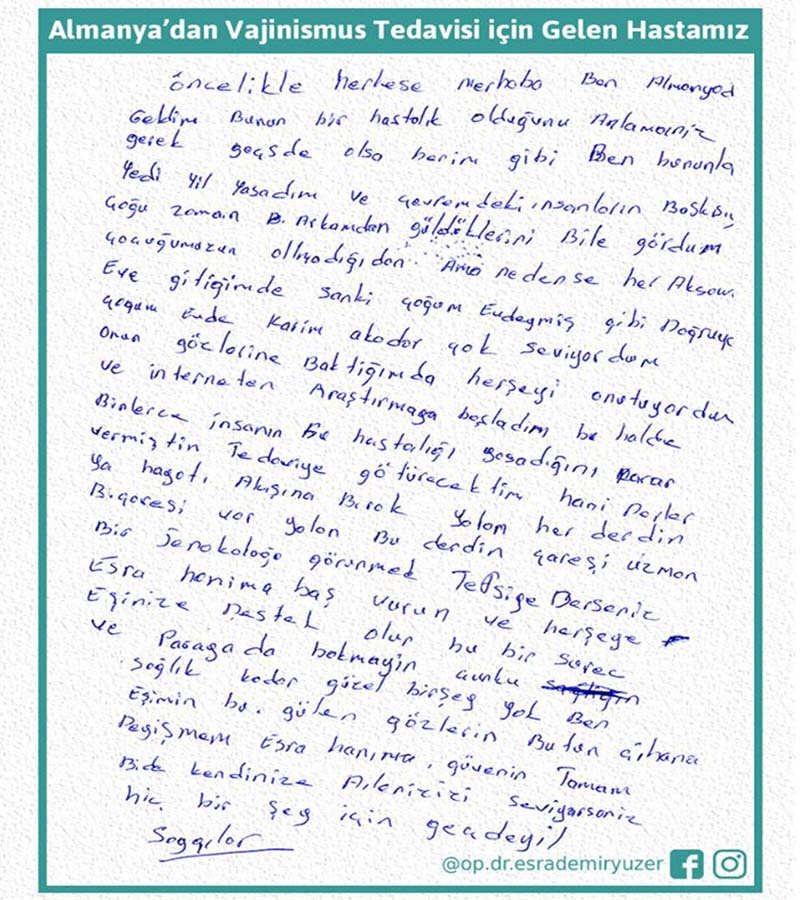 Almanya'dan Vajinismus Tedavisi için Gelen Hastamız
öncelikle herkese merhaba Ben Almanyad
Geldim Bunun bir hastalık olduğunu Anlamanız
gerek geçsde olsa benim gibi Ben bununla
Yedi yıl Yaşadım ve çevremdeki insanların Baskısı
çoğu zaman Arkamdan güldüklerini Bile gördum
çocuğumuzun olmadığıdan Ama nedense her Akşam
Eve gitiğimde sanki çoğum Evdeymiş gibi Doğruya
çoğum Evde Karim akadar çok seviyordum
Onun gözlerine Baktiğimda herşeyi onutuyordum
ve interneten Araştirmaga başladım bu halde
Binlerce insanın Bu hastalığı yaşadığını karar
vermiştin Tedaviye götürecektim hani Derler
ya hayatı Akışına Bırak Yolom her derdin
Biçaresi var yolon Bu derdin çareşi uzmon
Bir Jenokoloğo görünmek Tefsige Derseniz
Esra hanima baş vurun ve herşeye
Eşinize Destek olun bu bir surec
ve Paraya da bakmayin çunku
sağlik kadar güzel birşey yok Ben
Eşimin bu gülen gözlerin Butun cihana
Degişmem Esra hanıma, güvenin Tamam
Bide kendinize Ailenizizi seviyorsoniz
hic bir şey için geçdeyil
Saygılor
@op.dr.esrademiryuzer